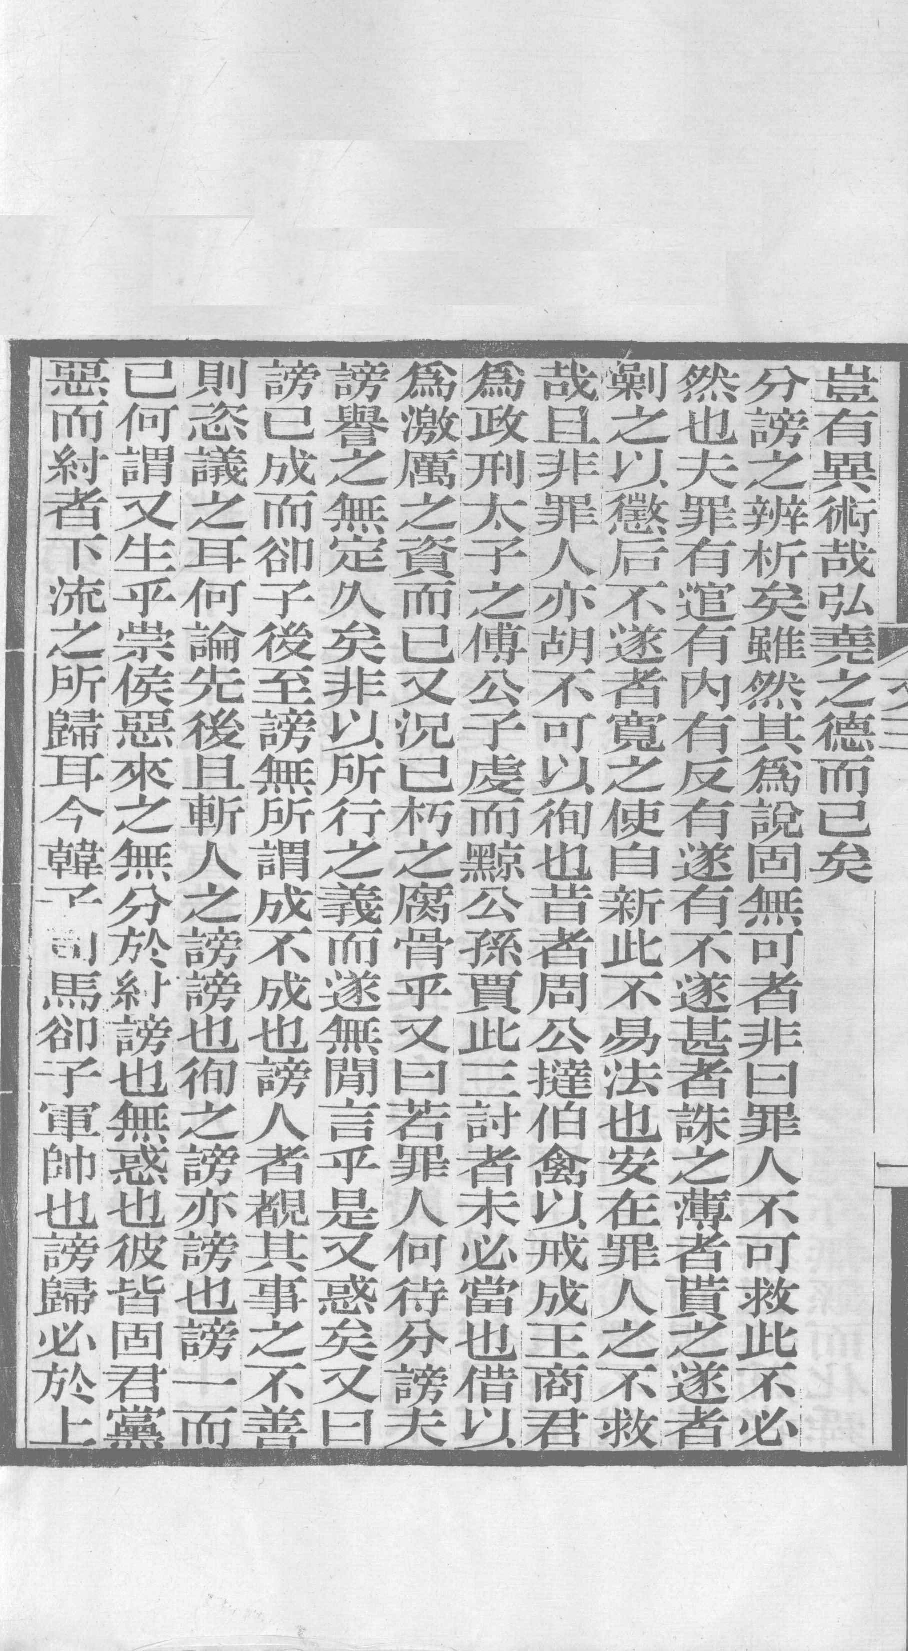 豈有異術哉弘堯之德而已矣
分謗之辨析矣雖然其為說固無可者非曰罪人不可救此不必
然也夫罪有逭有內有反有遂有不遂甚者誅之薄者貰之遂者
剿之以懲后不遂者寬之使自新此不易法也安在罪人之不救
哉且非罪人亦胡不可以徇也昔者周公撻伯禽以戒成王商君
為政刑太子之傅公子虔而黥公孫賈此三討者未必當也借以
為激厲之資而已又況已朽之腐骨乎又曰若罪人何待分謗夫
謗譽之無定久矣非以所行之義而遂無閒言乎是又惑矣又曰
謗已成而卻子後至謗無所謂成不成也謗人者覩其事之不善
則恣議之耳何論先後且斬人之謗謗也徇之謗亦謗也謗一而
已何謂又生乎崇侯惡來之無分於紂謗也無惑也彼皆固君黨
惡而紂者下流之所歸耳今韓子司馬卻子軍帥也謗歸必於上